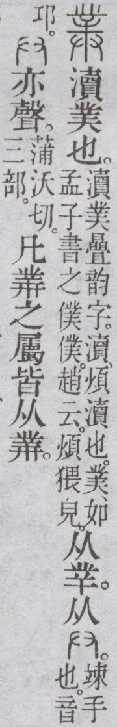 菐 瀆菐也。瀆菐疊韵字。瀆、煩瀆也。菐、如孟子書之僕僕。趙云。煩猥皃。从丵。从𠬞。竦手也。音
邛。𠬞亦聲。蒲沃切。三部。凡菐之屬皆从菐。